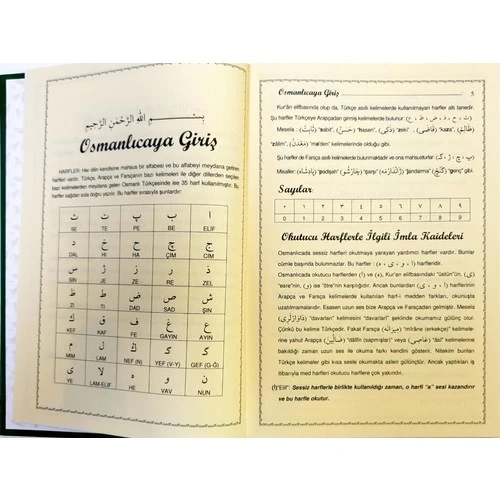 بِسْــــــمِ اللهِ الرَّحْمٰنِ الرَّحِيمِ
Osmanlıcaya Giriş
HARFLER: Her dilin kendisine mahsus bir alfabesi ve bu alfabeyi meydana getiren
harfleri vardır. Türkçe, Arapça ve Farsçanın bazı kelimeleri ile diğer dillerden seçilen
bazı kelimelerden meydana gelen Osmanlı Türkçesinde ise 35 harf kullanılmıştır. Bu
harfler sağdan sola doğru yazılır. Bu harfler sırasıyla şunlardır:
ث ت پ ب ا
SE TE PE BE ELİF
د خ ح چ ج
DAL HI HA ÇİM CİM
س ژ ز ر ذ
SİN JE ZE REL ZEL
ظ ط ض ص ش
ZI TI DAD SAD ŞIN
ك ق ف غ ع
KEF KAF FE GAYIN AYIN
م ل ڭ گ
MIM LAM NEF (N) YEF (V-Y) GEF (G-Ğ)
ى لا ه و ن
YE LAM-ELİF HE VAV NUN
Osmanlıcaya Giriş 5
Kur'ân elifbasında olup da, Türkçe asıllı kelimelerde kullanılmayan harfler altı tanedir.
Şu harfler Türkçeye Arapçadan girmiş kelimelerde bulunur: (ث ، ح ، ذ ، ض ، ظ ، ع)
Mesela : (ثَابِتْ) "sabit", (حَسَنْ) "hasan", (ذَكِى) "zeki", (قَاضِى) "kaza", (ظَالِمْ)
"zâlim", (مَعْدَنْ) "ma'den" kelimelerinde olduğu gibi.
Şu harfler de Farsça asıllı kelimelerde bulunmaktadır ve ona mahsusturlar: (پ ، چ ، ژ ، گ)
Mesela : (پَادِشَاهْ) "padişah", (چَارْشُو) "çarşı", (ژَانْدَارْمَه) "jandarma" (گَنْجْ) "genç" gibi.
Sayılar
٠ ١ ٢ ٣ ٤ ٥ ٦ ٧ ٨ ٩
0 1 2 3 4 5 6 7 8 9
Okutucu Harflerle İlgili İmla Kaideleri
Osmanlıcada sessiz harfleri okutmaya yarayan yardımcı harfler vardır. Bunlar
cümle başında bulunmazlar. Bu harfler : (ا ، و ، ى ، ه) harfleridir.
Osmanlıcada okutucu harflerden (ا) ve (ه), Kur'an elifbasındaki "üstün"ün, (ى)
"esre"nin, (و) ise "ötre"nin karşılığıdır. Ancak bunlardan (ا ، و ، ى) harflerinin
Arapça ve Farsça kelimelerde kullanılan harf-i medden farkları, okunuşta
uzatılmamalarıdır. Esasen uzun ses bize Arapça ve Farsçadan geçmiştir. Mesela
"davarları" kelimesini "davarları" şeklinde okumamak gülünç olur.
Çünkü bu kelime Türkçedir. Fakat Farsça (مِيرَانَه) "mîrâne (erkekçe)" kelimele-
rine yahut Arapça (ضَالِّينْ) "dâllîn (sapmışlar)" veya (عَاصِى) "âsi" kelimelerine
bakıldığı zaman uzun ses ile okuma farkı kendini gösterir. Nitekim bunları
Türkçe kelimeler gibi kısa sesle okumakta aslen gülünçtür. Ancak yaptıkları iş
itibarıyla med harfleri okutucu harflere çok yakındır.
(ا)"Elif": Sessiz harflerle birlikte kullanıldığı zaman, o harfi "a" sesi kazandırır
ve bu harfle okutur.